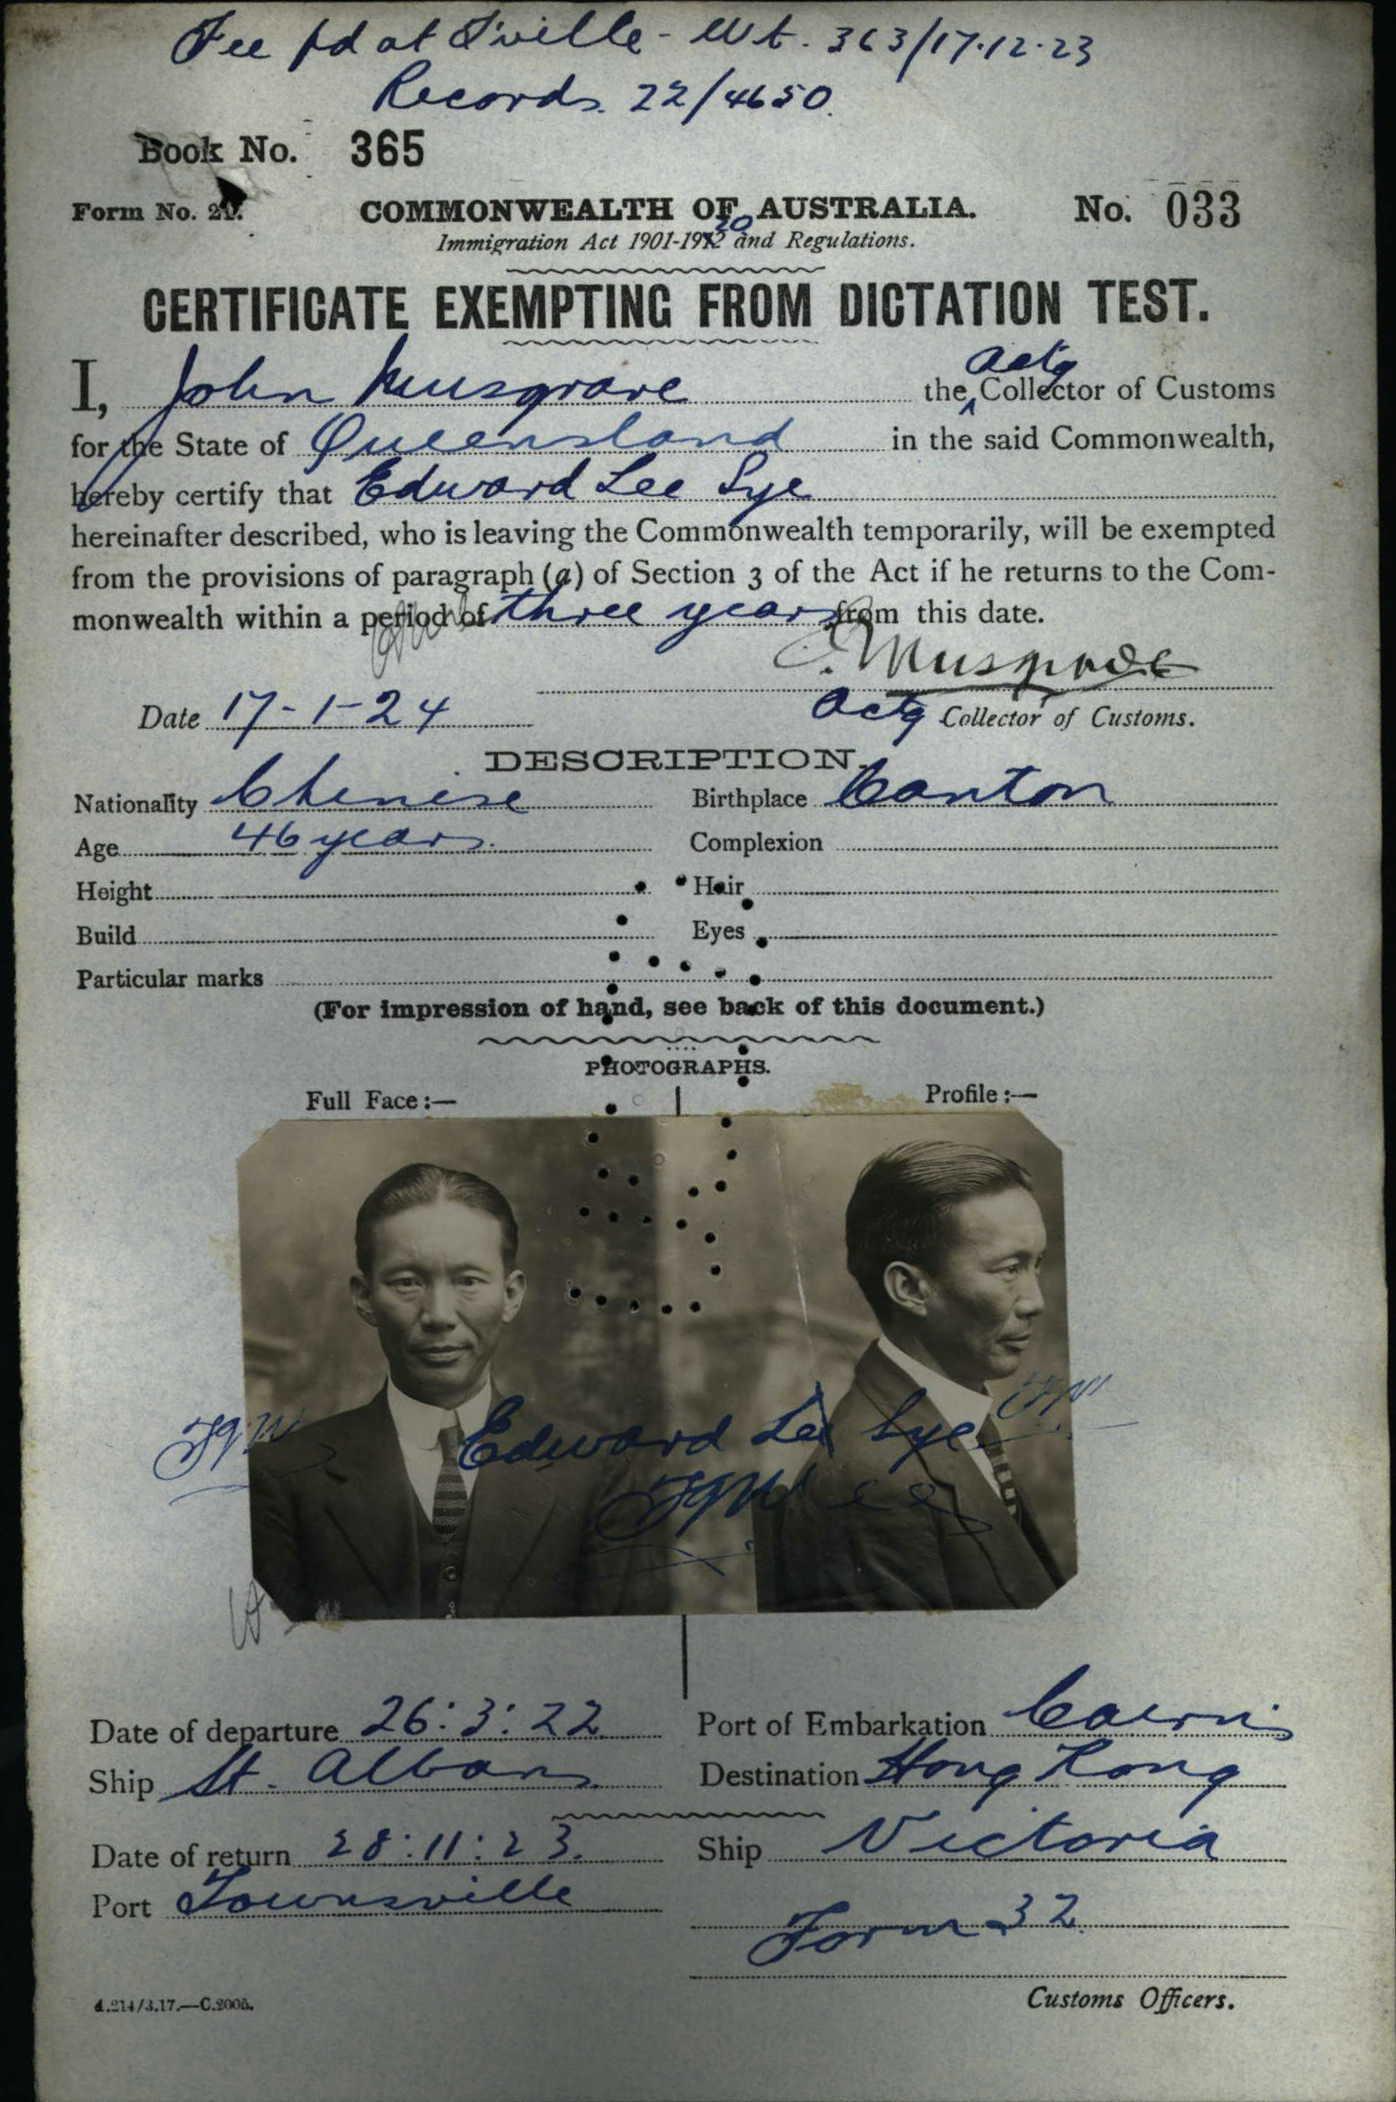 Fee pd at T'ville - 363/17.12.23
Records. 22/4650.
Book No. 365
Form No. 21.
COMMONWEALTH OF AUSTRALIA.
No. 033
20
Immigration Act 1901-1912 and Regulations.
CERTIFICATE EXEMPTING FROM DICTATION TEST.
I, John Musgrave the Actg Collector of Customs
for the State of Queensland in the said Commonwealth,
hereby certify that Edward Lee Sye
hereinafter described, who is leaving the Commonwealth temporarily, will be exempted
from the provisions of paragraph (a) of Section 3 of the Act if he returns to the Com-
monwealth within a period of three years from this date.
J. Musgrave
Date 17-1-24
Actg Collector of Customs.
DESCRIPTION.
Nationality Chinese Birthplace Canton
Age 46 years. Complexion
Height Hair
Build Eyes
Particular marks
(For impression of hand, see back of this document.)
PHOTOGRAPHS.
Full Face:— Profile:—
Edward Lee Sye
Date of departure 26:3:22 Port of Embarkation Cairns
Ship St. Albans Destination Hong Kong
Date of return 28:11:23. Ship Victoria
Port Townsville
Form 32
d.214/3.17.—C.2005.
Customs Officers.